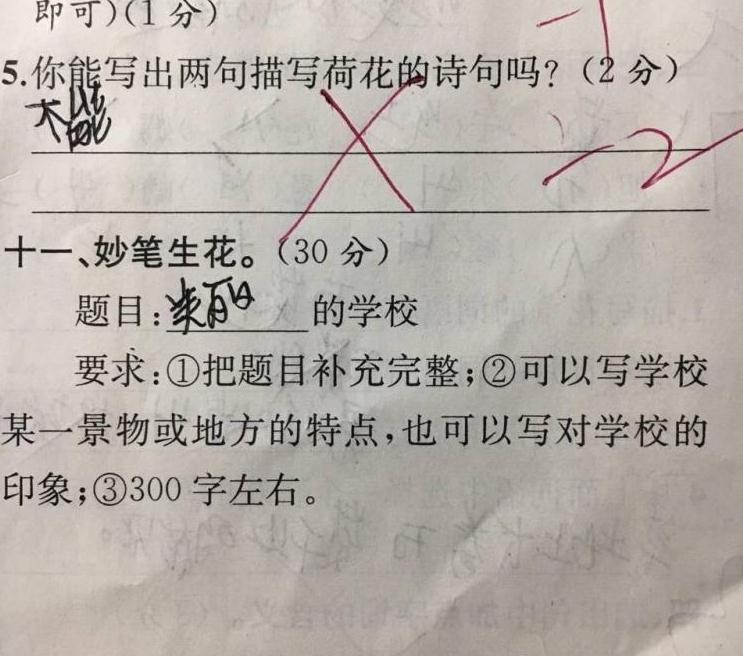 即可)(1分)
-1
5.你能写出两句描写荷花的诗句吗?(2分)
不能
-2
十一、妙笔生花。(30分)
题目:美丽的学校
要求:①把题目补充完整;②可以写学校
某一景物或地方的特点,也可以写对学校的
印象;③300字左右。